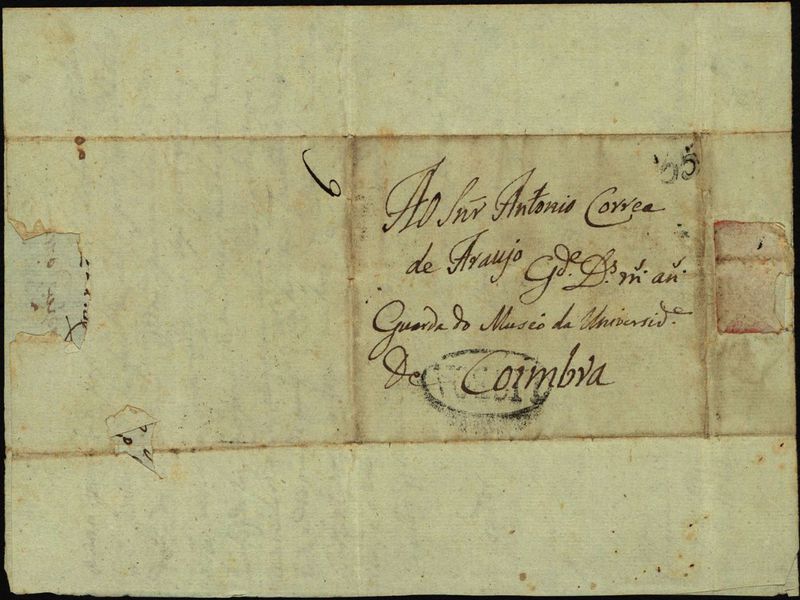 35
Ao Snr̃ Antonio Correa
de Araujo Gde. Ds. ms. ans.
Guarda do Museo da Universide.
De Coimbra